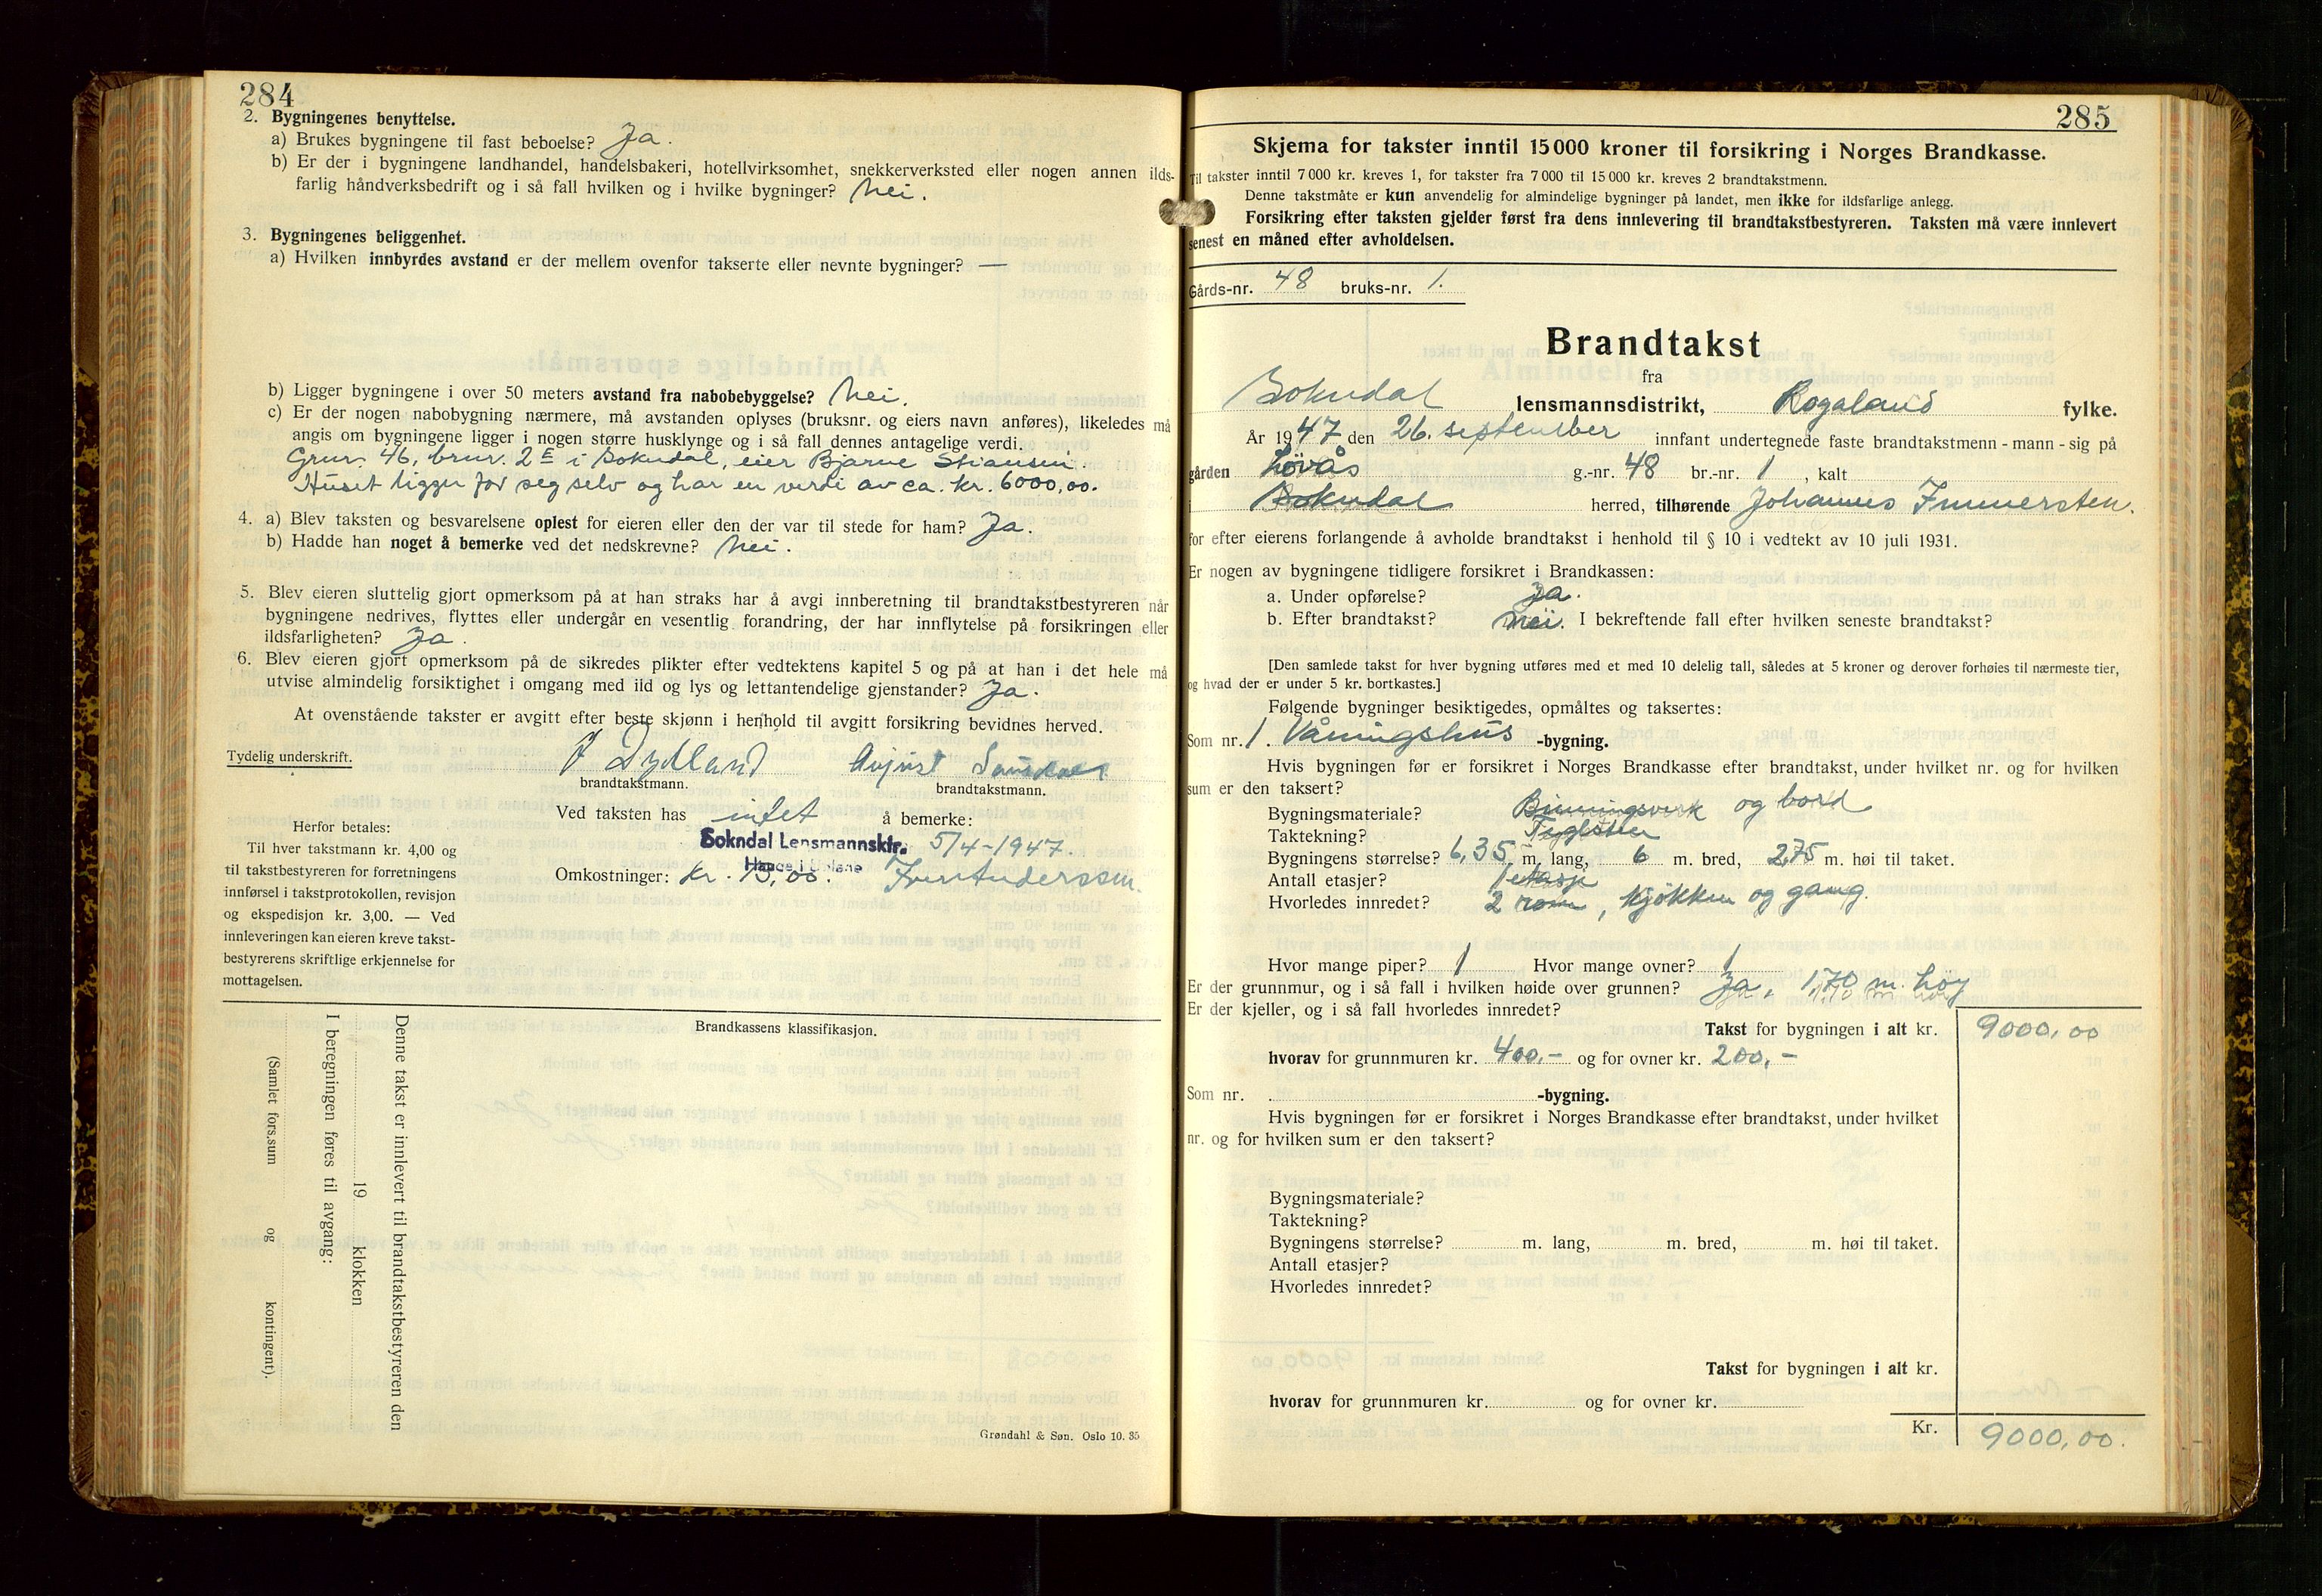 284
2. Bygningenes benyttelse.
a) Brukes bygningene til fast beboelse? Ja.
b) Er der i bygningene landhandel, handelsbakeri, hotellvirksomhet, snekkerverksted eller nogen annen ilds-
farlig håndverksbedrift og i så fall hvilken og i hvilke bygninger? Nei.
3. Bygningenes beliggenhet.
a) Hvilken innbyrdes avstand er der mellem ovenfor takserte eller nevnte bygninger? —
b) Ligger bygningene i over 50 meters avstand fra nabobebyggelse? Nei.
c) Er der nogen nabobygning nærmere, må avstanden oplyses (bruksnr. og eiers navn anføres), likeledes må
angis om bygningene ligger i nogen større husklynge og i så fall dennes antagelige verdi.
Grnr. 46, brnr. 2 E i Sokndal, eier Bjarne Stiansen.
Huset ligger for seg selv og har en verdi av ca. kr. 6000,00.
4. a) Blev taksten og besvarelsene oplest for eieren eller den der var til stede for ham? Ja.
b) Hadde han noget å bemerke ved det nedskrevne? Nei.
5. Blev eieren sluttelig gjort opmerksom på at han straks har å avgi innberetning til brandtakstbestyreren når
bygningene nedrives, flyttes eller undergår en vesentlig forandring, der har innflytelse på forsikringen eller
ildsfarligheten? Ja.
6. Blev eieren gjort opmerksom på de sikredes plikter efter vedtektens kapitel 5 og på at han i det hele må
utvise almindelig forsiktighet i omgang med ild og lys og lettantendelige gjenstander? Ja.
At ovenstående takster er avgitt efter beste skjønn i henhold til avgitt forsikring bevidnes herved.
Tydelig underskrift. Dylland August
brandtakstmann. brandtakstmann.
Ved taksten has intet å bemerke:
Sokndal Lensmannsktr. 5/4-1947.
Hauge i Dalane
Omkostninger: Kr. 15,00.
Herfor betales:
Til hver takstmann kr. 4,00 og
til takstbestyreren for forretningens
innførsel i takstprotokollen, revisjon
og ekspedisjon kr. 3,00. — Ved
innleveringen kan eieren kreve takst-
bestyrerens skriftlige erkjennelse for
mottagelsen.
Brandkassens klassifikasjon.
Denne takst er innlevert til brandtakstbestyreren den
19 klokken
I beregningen føres til avgang:
(Samlet fors.sum og kontingent).
Grøndahl & Søn. Oslo 10. 35
285
Skjema for takster inntil 15 000 kroner til forsikring i Norges Brandkasse.
Til takster inntil 7 000 kr. kreves 1, for takster fra 7 000 til 15 000 kr. kreves 2 brandtakstmenn.
Denne takstmåte er kun anvendelig for almindelige bygninger på landet, men ikke for ildsfarlige anlegg.
Forsikring efter taksten gjelder først fra dens innlevering til brandtakstbestyreren. Taksten må være innlevert
senest en måned efter avholdelsen.
Gårds-nr. 48 bruks-nr. 1.
Brandtakst
fra
Sokndal lensmannsdistrikt, Rogaland fylke.
År 1947 den 26. september innfant undertegnede faste brandtakstmenn - mann - sig på
gården Løvås g.-nr. 48 br.-nr. 1, kalt
Sokndal herred, tilhørende Johannes Immersten.
for efter eierens forlangende å avholde brandtakst i henhold til § 10 i vedtekt av 10 juli 1931.
Er nogen av bygningene tidligere forsikret i Brandkassen:
a. Under opførelse? Ja.
b. Efter brandtakst? Nei. I bekreftende fall efter hvilken seneste brandtakst?
[Den samlede takst for hver bygning utføres med et med 10 delelig tall, således at 5 kroner og derover forhøies til nærmeste tier,
og hvad der er under 5 kr. bortkastes.]
Følgende bygninger besiktigedes, opmåltes og taksertes:
Som nr. 1. Våningshus -bygning.
Hvis bygningen før er forsikret i Norges Brandkasse efter brandtakst, under hvilket nr. og for hvilken
sum er den taksert?
Bygningsmateriale? Binningsverk og bord
Taktekning? Teglsten
Bygningens størrelse? 6,35 m. lang, 6 m. bred, 2,75 m. høi til taket.
Antall etasjer? 1 etasje
Hvorledes innredet? 2 rom, kjøkken og gang.
Hvor mange piper? 1 Hvor mange ovner? 1
Er der grunnmur, og i så fall i hvilken høide over grunnen? Ja, 1,70 m. høy
Er der kjeller, og i så fall hvorledes innredet?
Takst for bygningen i alt kr. 9000,00
hvorav for grunnmuren kr. 400,- og for ovner kr. 200,-
Som nr. -bygning.
Hvis bygningen før er forsikret i Norges Brandkasse efter brandtakst, under hvilket
nr. og for hvilken sum er den taksert?
Bygningsmateriale?
Taktekning?
Bygningens størrelse? m. lang, m. bred, m. høi til taket.
Antall etasjer?
Hvorledes innredet?
Takst for bygningen i alt kr.
hvorav for grunnmuren kr. og for ovner kr.
Kr. 9000,00.